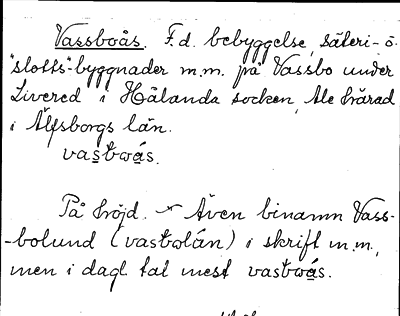 Vassboås. F.d. bebyggelse, säteri- o.
"slotts"-byggnader m.m. på Vassbo under
Livered i Hålanda socken, Ale härad
i Älfsborgs län.
vastwås.
På höjd. Även binamn Vass-
-bolund (vastolán) i skrift m.m.,
men i dagl. tal mest vastwås.